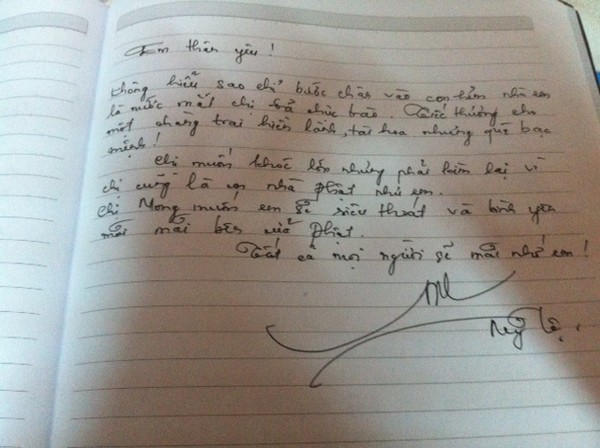 Em thân yêu !
Không hiểu sao chỉ bước chân vào con hẻm nhà em
là nước mắt chị đã chực trào. Tiếc thương cho
một chàng trai hiền lành, tài hoa nhưng quá bạc
mệnh !
Chị muốn khóc lớn nhưng phải kìm lại vì
chị cũng là con nhà phật như em.
Chị Mong muốn em sẽ siêu thoát và bình yên
mãi mãi bên cửa Phật.
Tất cả mọi người sẽ mãi nhớ em !
Mỹ Lệ.